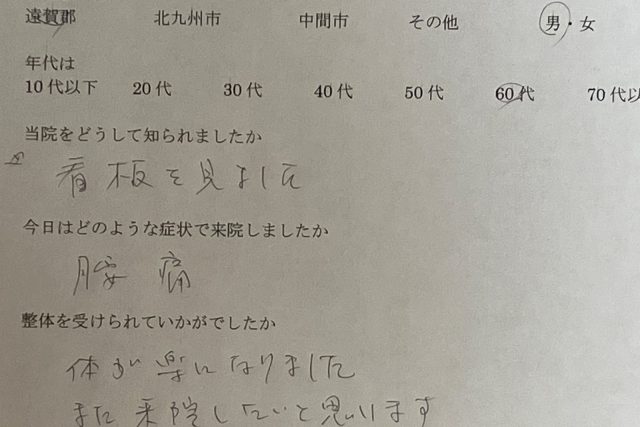 遠賀郡 北九州市 中間市 その他 男・女
年代は
10代以下 20代 30代 40代 50代 60代 70代以
当院をどうして知られましたか
看板を見ました
今日はどのような症状で来院しましたか
腰痛
整体を受けられていかがでしたか
体が楽になりました
また来院したいと思います